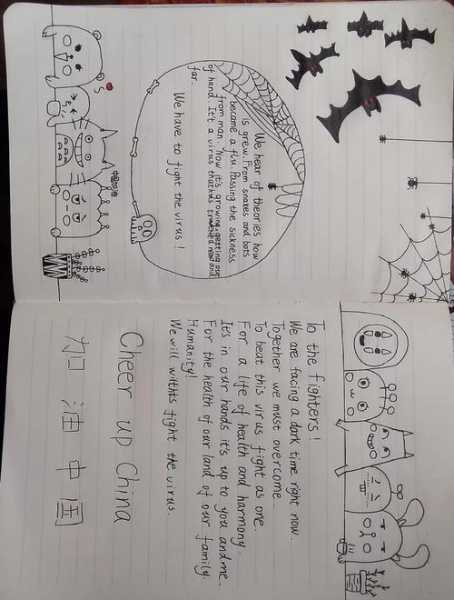 We hear of theories how
is grew. From snakes and bats
became a flu. Passing the sickness
from man. Now it's growing, getting out
of hand. It's a virus that has travelled now and
far.
We have to fight the virus!
To the fighters!
We are facing a dark time right now.
Together we must overcome
To beat this virus fight as one.
For a life of health and harmony
It's in our hands it's up to you and me.
For the health of our land of our family.
Humanity!
We will fight the virus.
Cheer up China
加油中国